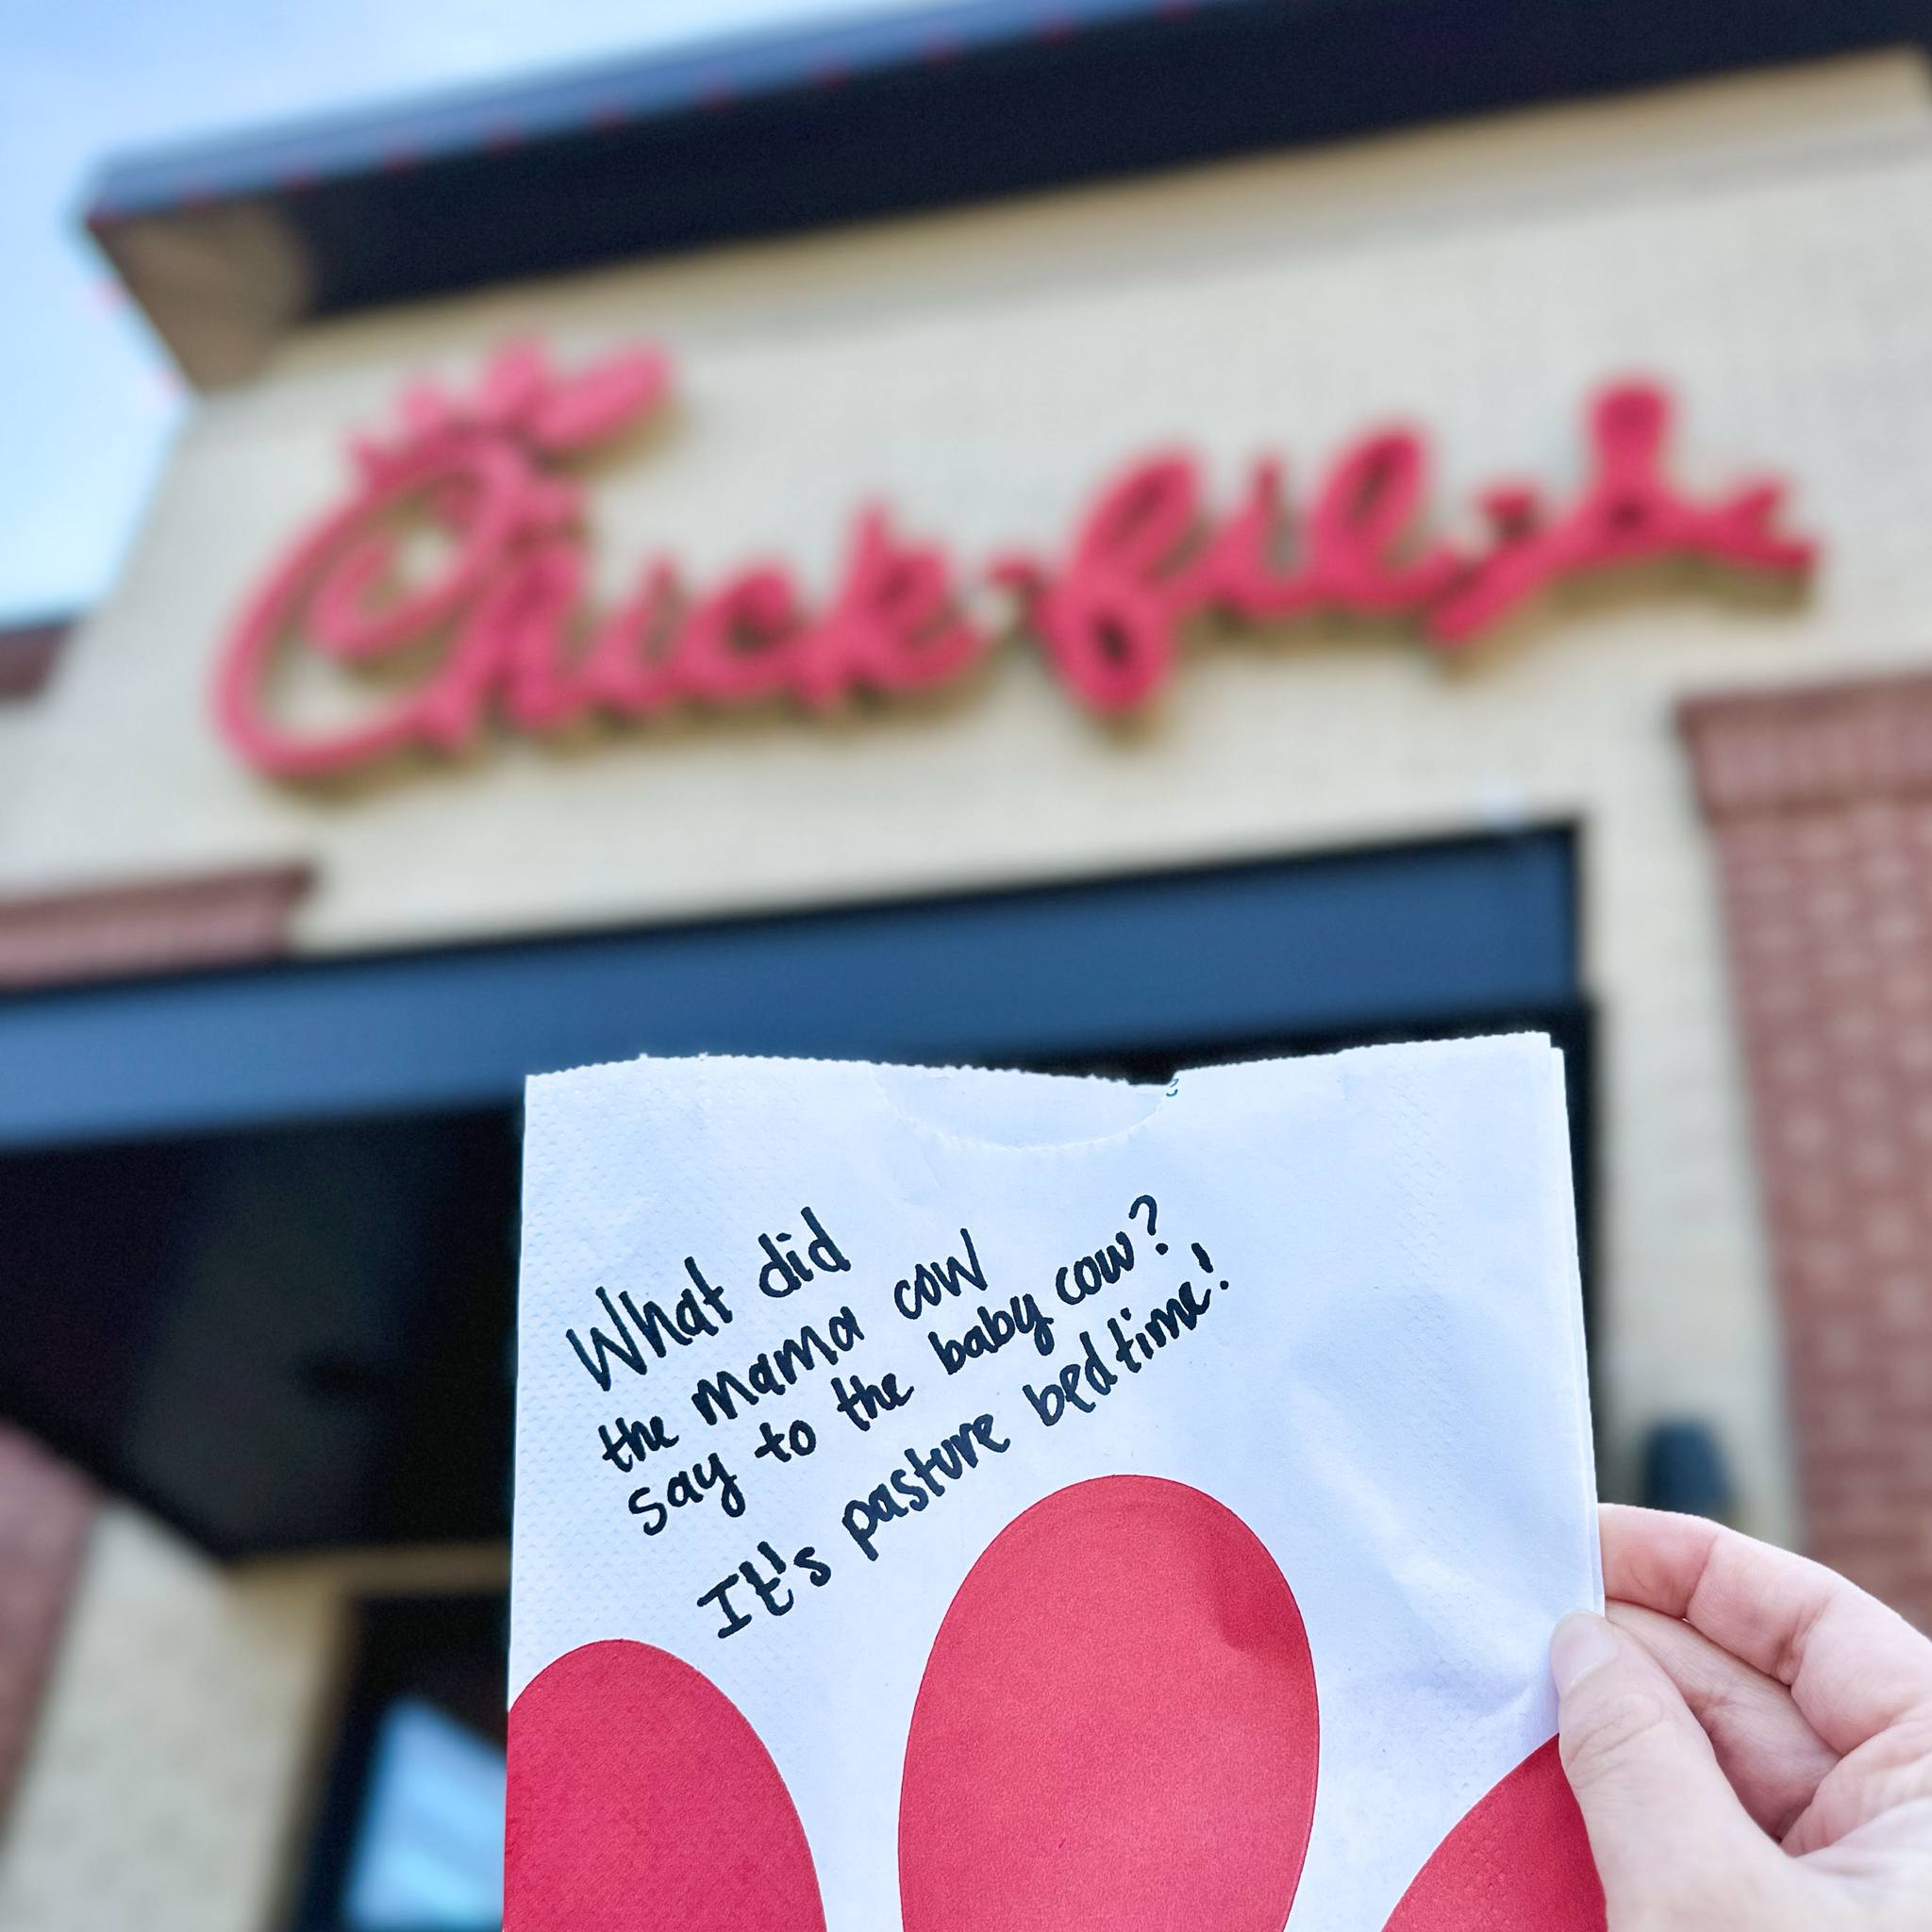 Chick-fil-A
What did
the mama cow
say to the baby cow?
It's pasture bedtime!